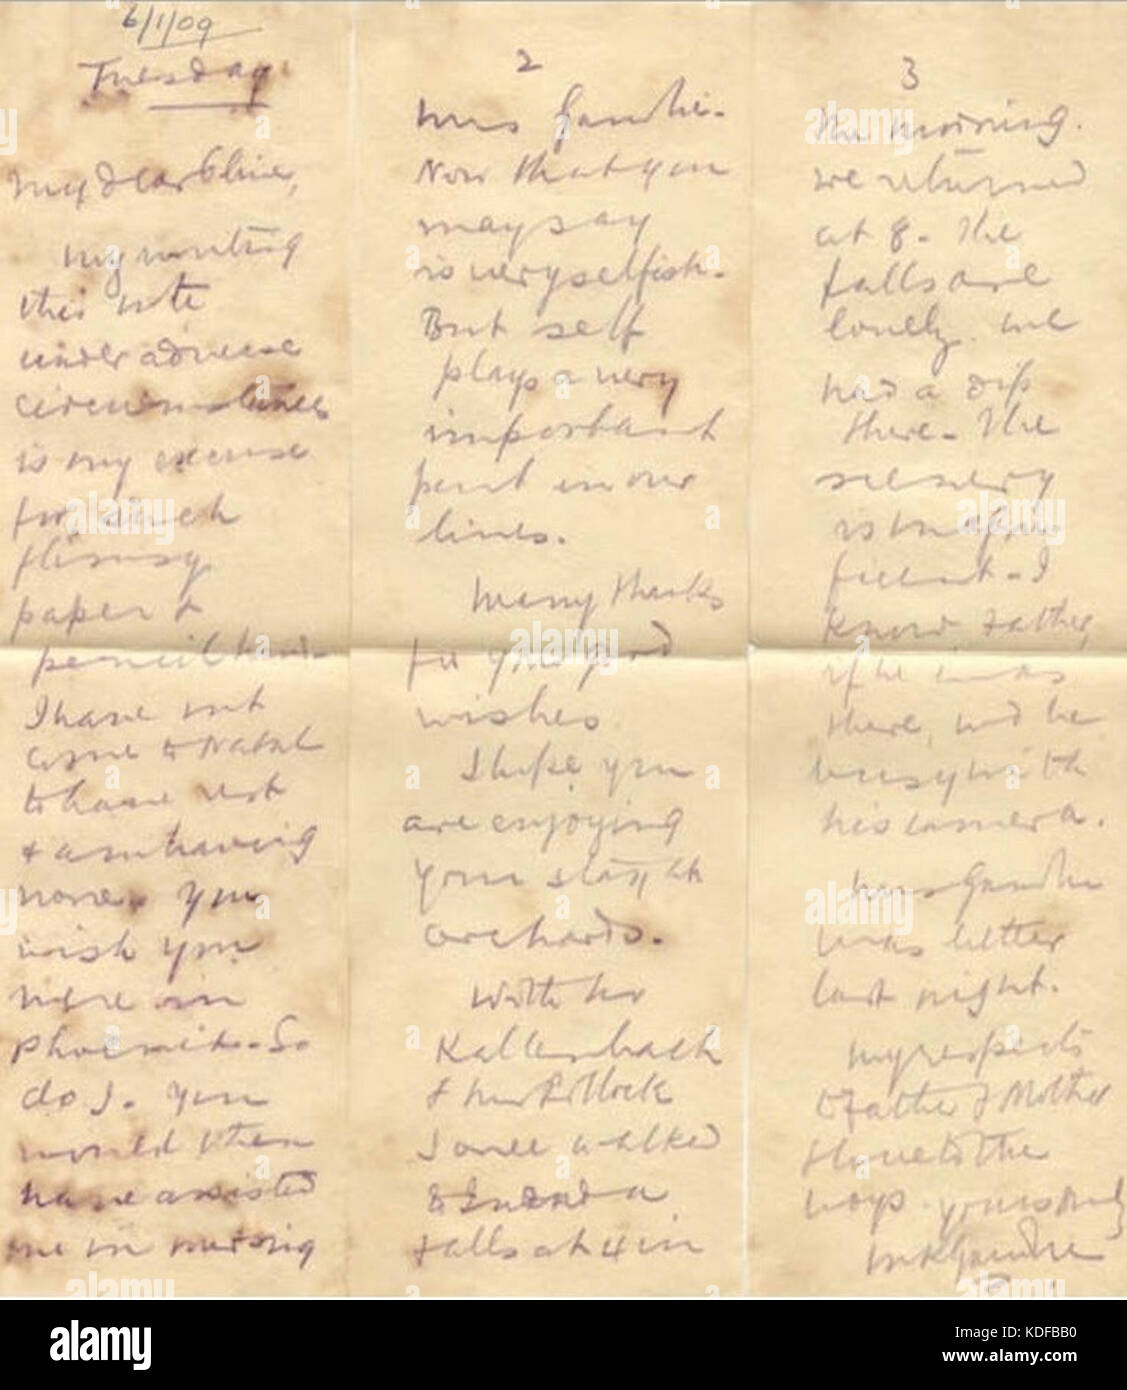 6/1/09
Tuesday
my dear Olive,
my writing
this note
under adverse
circumstances
is my excuse
for such
flimsy
paper &
pencil hand.
I have not
come to Natal
to have rest
& am having
none. You
wish you
were in
Phoenix. So
do I. You
would then
have assisted
me in nursing
2
Mrs Gandhi.
Now that you
may say
is very selfish.
But self
plays a very
important
part in our
lives.
Many thanks
for your good
wishes.
I hope you
are enjoying
your stay at
orchards.
With Mr
Kallenbach
& Mr Pollock
I once walked
to Inanda
falls at 4 in
3
the morning.
We returned
at 8. The
falls are
lovely. We
had a dip
there. The
scenery
is magni
ficent. I
know Father,
if he was
there, wd be
busy with
his camera.
Mrs Gandhi
was better
last night.
My respects
to Father & Mother
& love to the
boys. Yours truly
MKGandhi
alamy
a
alamy
Image ID: KDFBB0
www.alamy.com